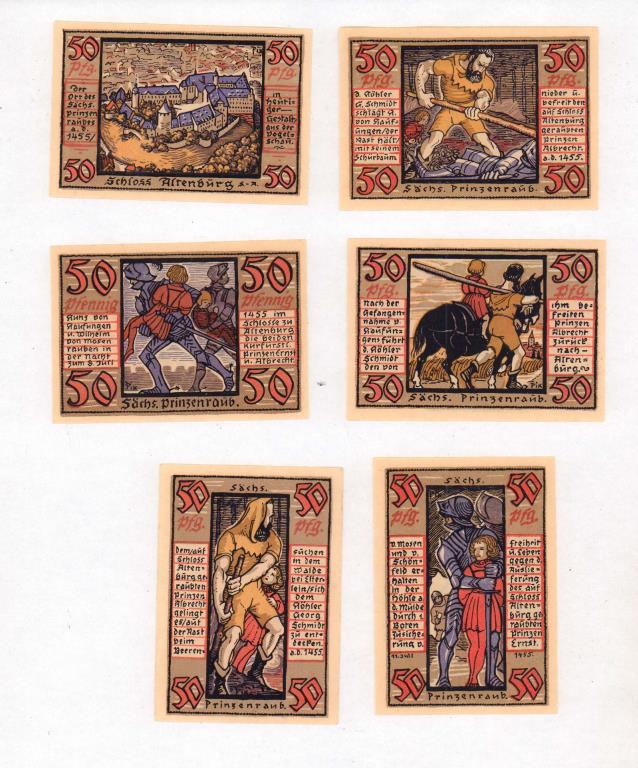 50 50
Pfg. Pfg.
der
Ort des
Sächs.
Prinzen
raubes
a.d.
1455/
in
heutiger
Gestalt
aus der
Vogel-
schau.
50 50
Schloss Altenburg S.-A.
50 50
Pfg. Pfg.
d. Köhler
G. Schmidt
schlägt K.
von Kauf-
ungen/der
Rast hält/
mit seinem
Schürbaum
nieder u.
befreit den
auf Schloss
Altenburg
geraubten
Prinzen
Albrecht.
a.d. 1455.
50 50
Sächs. Prinzenraub.
50 50
Pfennig Pfennig
Kunz von
Kaufungen
u. Wilhelm
von Mosen
rauben in
der Nacht
zum 8. Juli
1455 im
Schlosse zu
Altenburg
die beiden
Kurfürstl.
Prinzen Ernst
u. Albrecht.
50 50
Sächs. Prinzenraub.
50 50
Pfg. Pfg.
nach der
Gefangen-
nahme v.
Kaufun-
gens führt
d. Köhler
Schmidt
den von
ihm be-
freiten
Prinzen
Albrecht
zurück
nach
Alten-
burg.
50 50
Pix
Sächs. Prinzenraub.
Sächs.
50 50
Pfg. Pfg.
dem/auf
Schloss
Alten-
burg ge-
raubten
Prinzen
Albrecht
gelingt
es/auf
der Rast
beim
Beeren-
suchen
in dem
Walde
bei Elter-
lein/sich
dem
Köhler
Georg
Schmidt
zu ent-
decken.
a.d. 1455.
50 50
Prinzenraub.
Sächs.
50 50
Pfg. Pfg.
v. Mosen
und v.
Schön-
feld er-
halten
in der
Höhle a.
d. Mulde
durch 1
Boten
Zusiche-
rung v.
11. Juli
Freiheit
u. Leben
gegen d.
Auslie-
ferung
des auf
Schloss
Alten-
burg ge-
raubten
Prinzen
Ernst.
1455.
50 50
Prinzenraub.